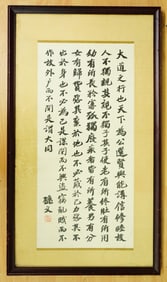 大道之行也天下為公選賢與能講信修睦故
人不獨親其親不獨子其子使老有所終壯有所用
幼有所長矜寡孤獨廢疾者皆有所養男有分
女有歸貨惡其棄於地也不必藏於己力惡其不
出於身也不必為己是故謀閉而不興盜竊亂賊而不
作故外戶而不閉是謂大同
孫文